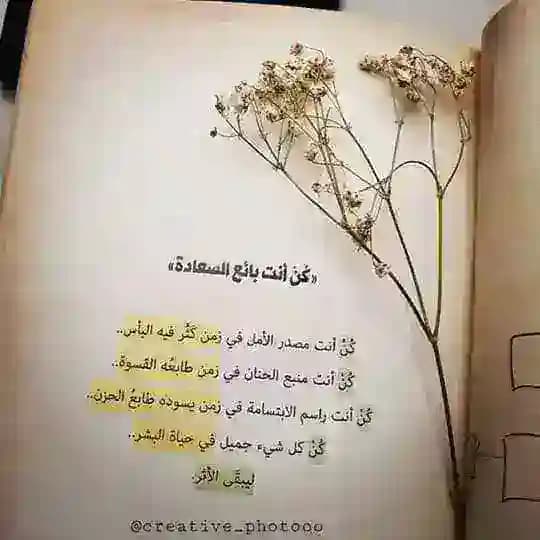 «كُنْ أنت بائع السعادة»
كُنْ أنت مصدر الأمل في زمن كَثُر فيه البأس..
كُنْ أنت منبع الحنان في زمن طابعُه القسوة..
كُنْ أنت راسم الابتسامة في زمن يسوده طابعُ الحزن..
كُنْ كل شيء جميل في حياة البشر..
ليبقَى الأثر.
@creative_photooo